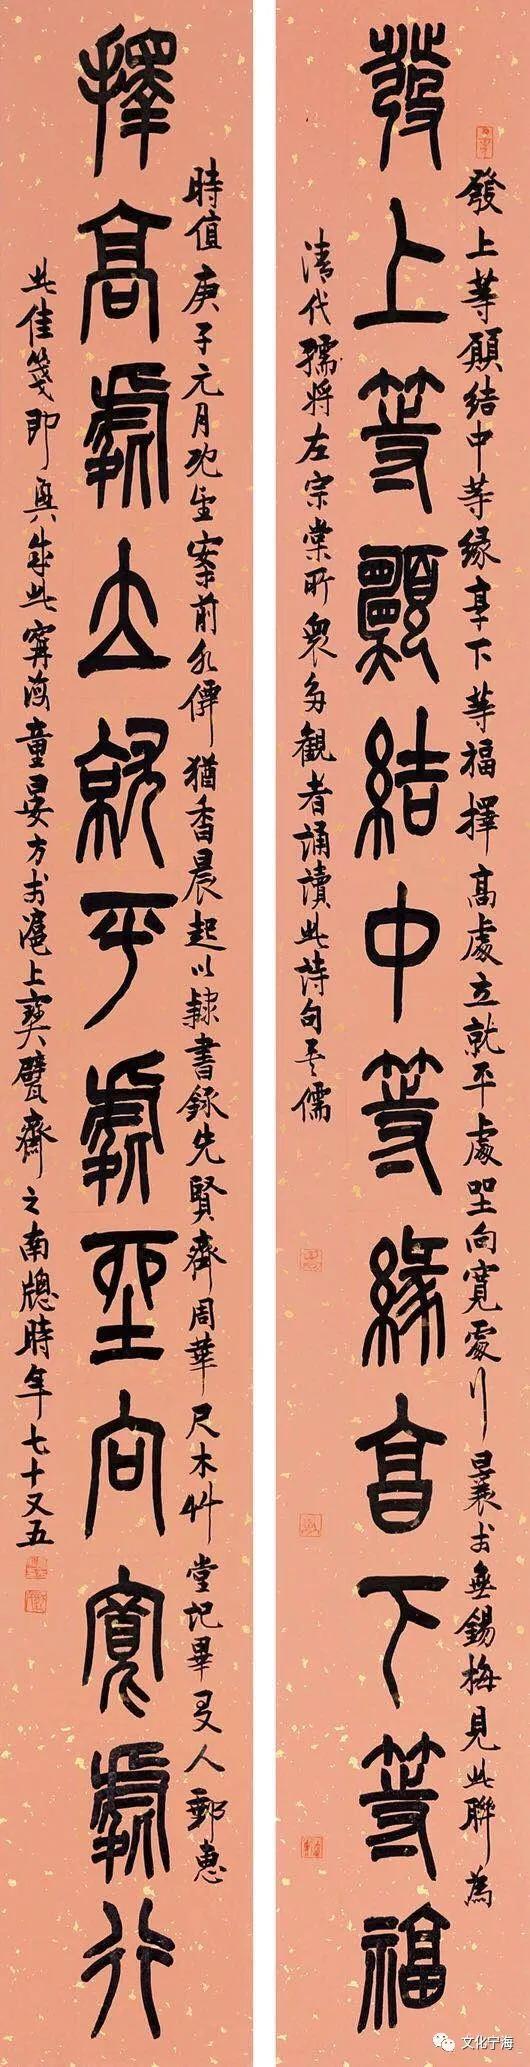 發上等願結中等緣享下等福
發上等願結中等緣享下等福擇高處立就平處坐向寬處行曩于無錫梅見此聯為
清代儒將左宗棠所眾多觀者誦讀此詩句
擇高處立就平處坐向寬處行
時值庚子元月
案前水僊猶香晨起以隸書錄先賢齊周華尺木艸堂記畢友人郵惠
此佳箋即興
此寧海童晏方于滬上寶甓齋之南窗時年七十又五
文化宁海